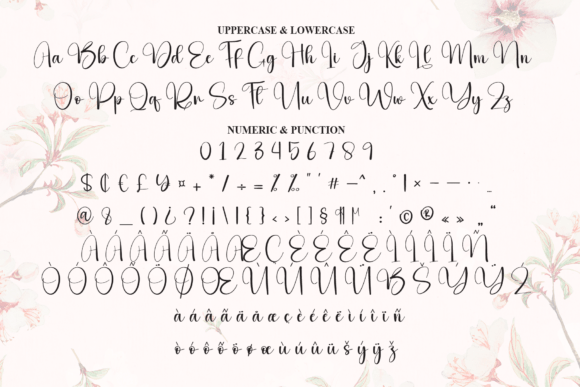 UPPERCASE & LOWERCASE
Aa Bb Cc Dd Ee Ff Gg Hh Ii Jj Kk Ll Mm Nn
Oo Pp Qq Rr Ss Tt Uu Vv Ww Xx Yy Zz
NUMERIC & PUNCTION
0 1 2 3 4 5 6 7 8 9
$ ₵ € £ ¥ ¤ + * / ÷ = % ‰ " ' # – ^ , . ° | × – — · -
@ & _ ( ) ¿ ? ! ¡ \ | { } < > [ ] § ¶ : ' © ® « » „ “
À Á Â Ã Ä Å Æ Ç È É Ê Ë Ì Í Î Ï Ñ
Ò Ó Ô Õ Ö Ø Œ Ù Ú Û Ü ß Š Ý Ÿ Ž
à á â ã ä å æ ç è é ê ë ì í î ï ñ
ò ó ô õ ö ø œ ù ú û ü š ý ÿ ž